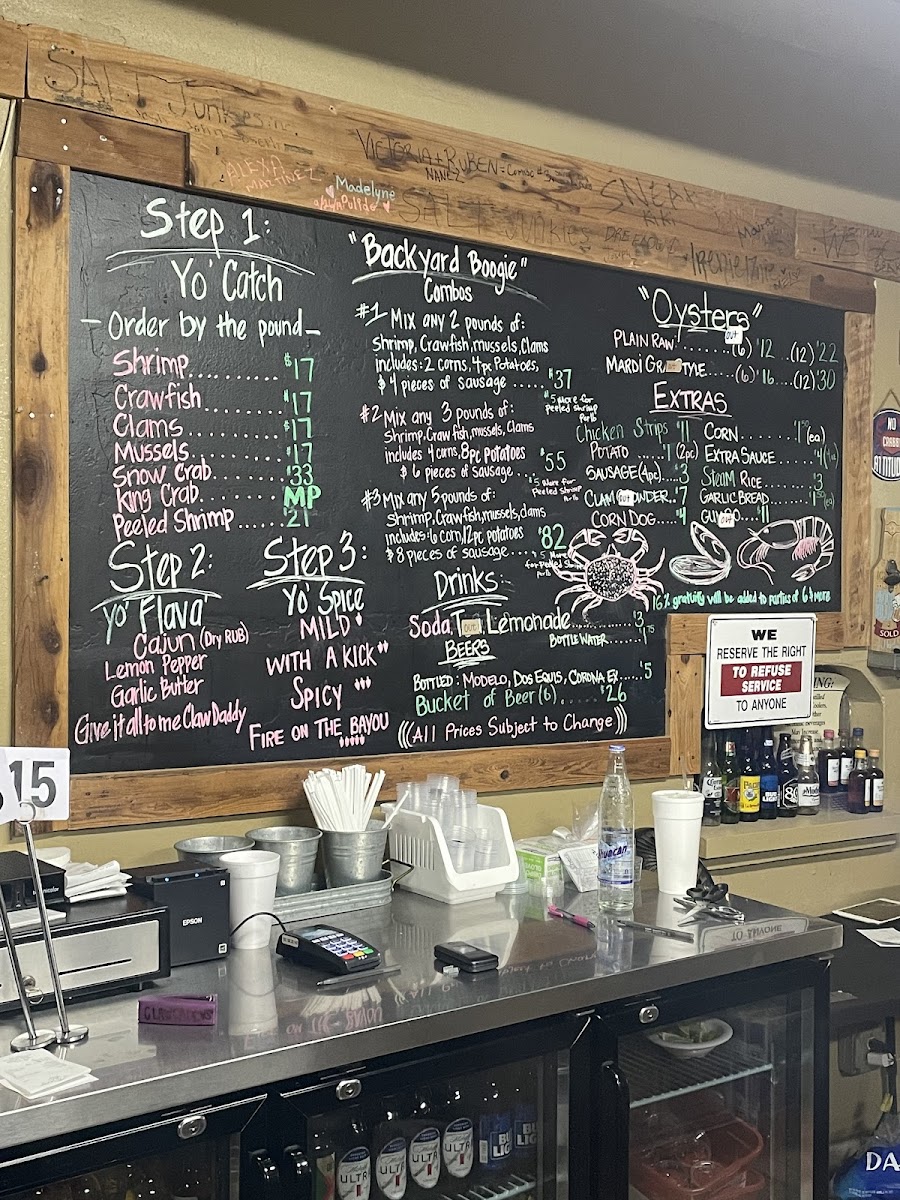 SALT Junkies
VICTORIA + RUBEN
ALEXA
MARTINEZ
Madelyne
Pulido
SALT Junkies
Step 1:
Yo' Catch
- Order by the pound -
Shrimp.......... $17
Crawfish......... $17
Clams........... $17
Mussels......... $17
Snow Crab....... $33
King Crab....... MP
Peeled Shrimp..... 21
Step 2:
Yo' Flava'
Cajun (Dry RUB)
Lemon Pepper
Garlic Butter
Give it all to me Claw Daddy
Step 3:
Yo' Spice
MILD
WITH A KICK
SPICY
FIRE ON THE BAYOU
"Backyard Boogie"
Combos
#1 Mix any 2 pounds of:
Shrimp, Crawfish, mussels, Clams
includes: 2 corns, 4pc Potatoes,
& 4 pieces of sausage ..... $37
$5 More for
peeled shrimp
#2 Mix any 3 pounds of:
Shrimp, Crawfish, mussels, Clams
includes 4 corns, 8pc potatoes
& 6 pieces of sausage..... $55
$5 More for
Peeled Shrimp
#3 Mix any 5 pounds of:
Shrimp, Crawfish, mussels, clams
includes: 6 corn/12pc potatoes
& 8 pieces of sausage..... $82
$5 More
for peeled
Drinks
Soda, out, Lemonade.......... 3
BOTTLE WATER......
BEERS
BOTTLED: MODELO, DOS EQUIS, CORONA EX.....$5
Bucket of Beer (6)........ $26
((All Prices Subject to Change))
"Oysters"
PLAIN RAW out ........(6) $12 ...(12) $22
MARDI GRA STYLE.....(6) $16....(12) $30
EXTRAS
Chicken Strips $11
POTATO .....$1 (2pc)
SAUSAGE (4pc)...$3
CLAM out WDER. $7
CORN DOG....$4
CORN......... (ea)
EXTRA SAUCE.....$4
Steam RICE ........$3
GARLIC BREAD......
GUM out O.....$11
16% gratuity will be added to parties of 6 & more
WE
RESERVE THE RIGHT
TO REFUSE
SERVICE
TO ANYONE
NO
CRABBY
ATTITUDE
SOLD
15
EPSON
ULTRA
ULTRA
ULTRA
BUD
LIGHT
DA